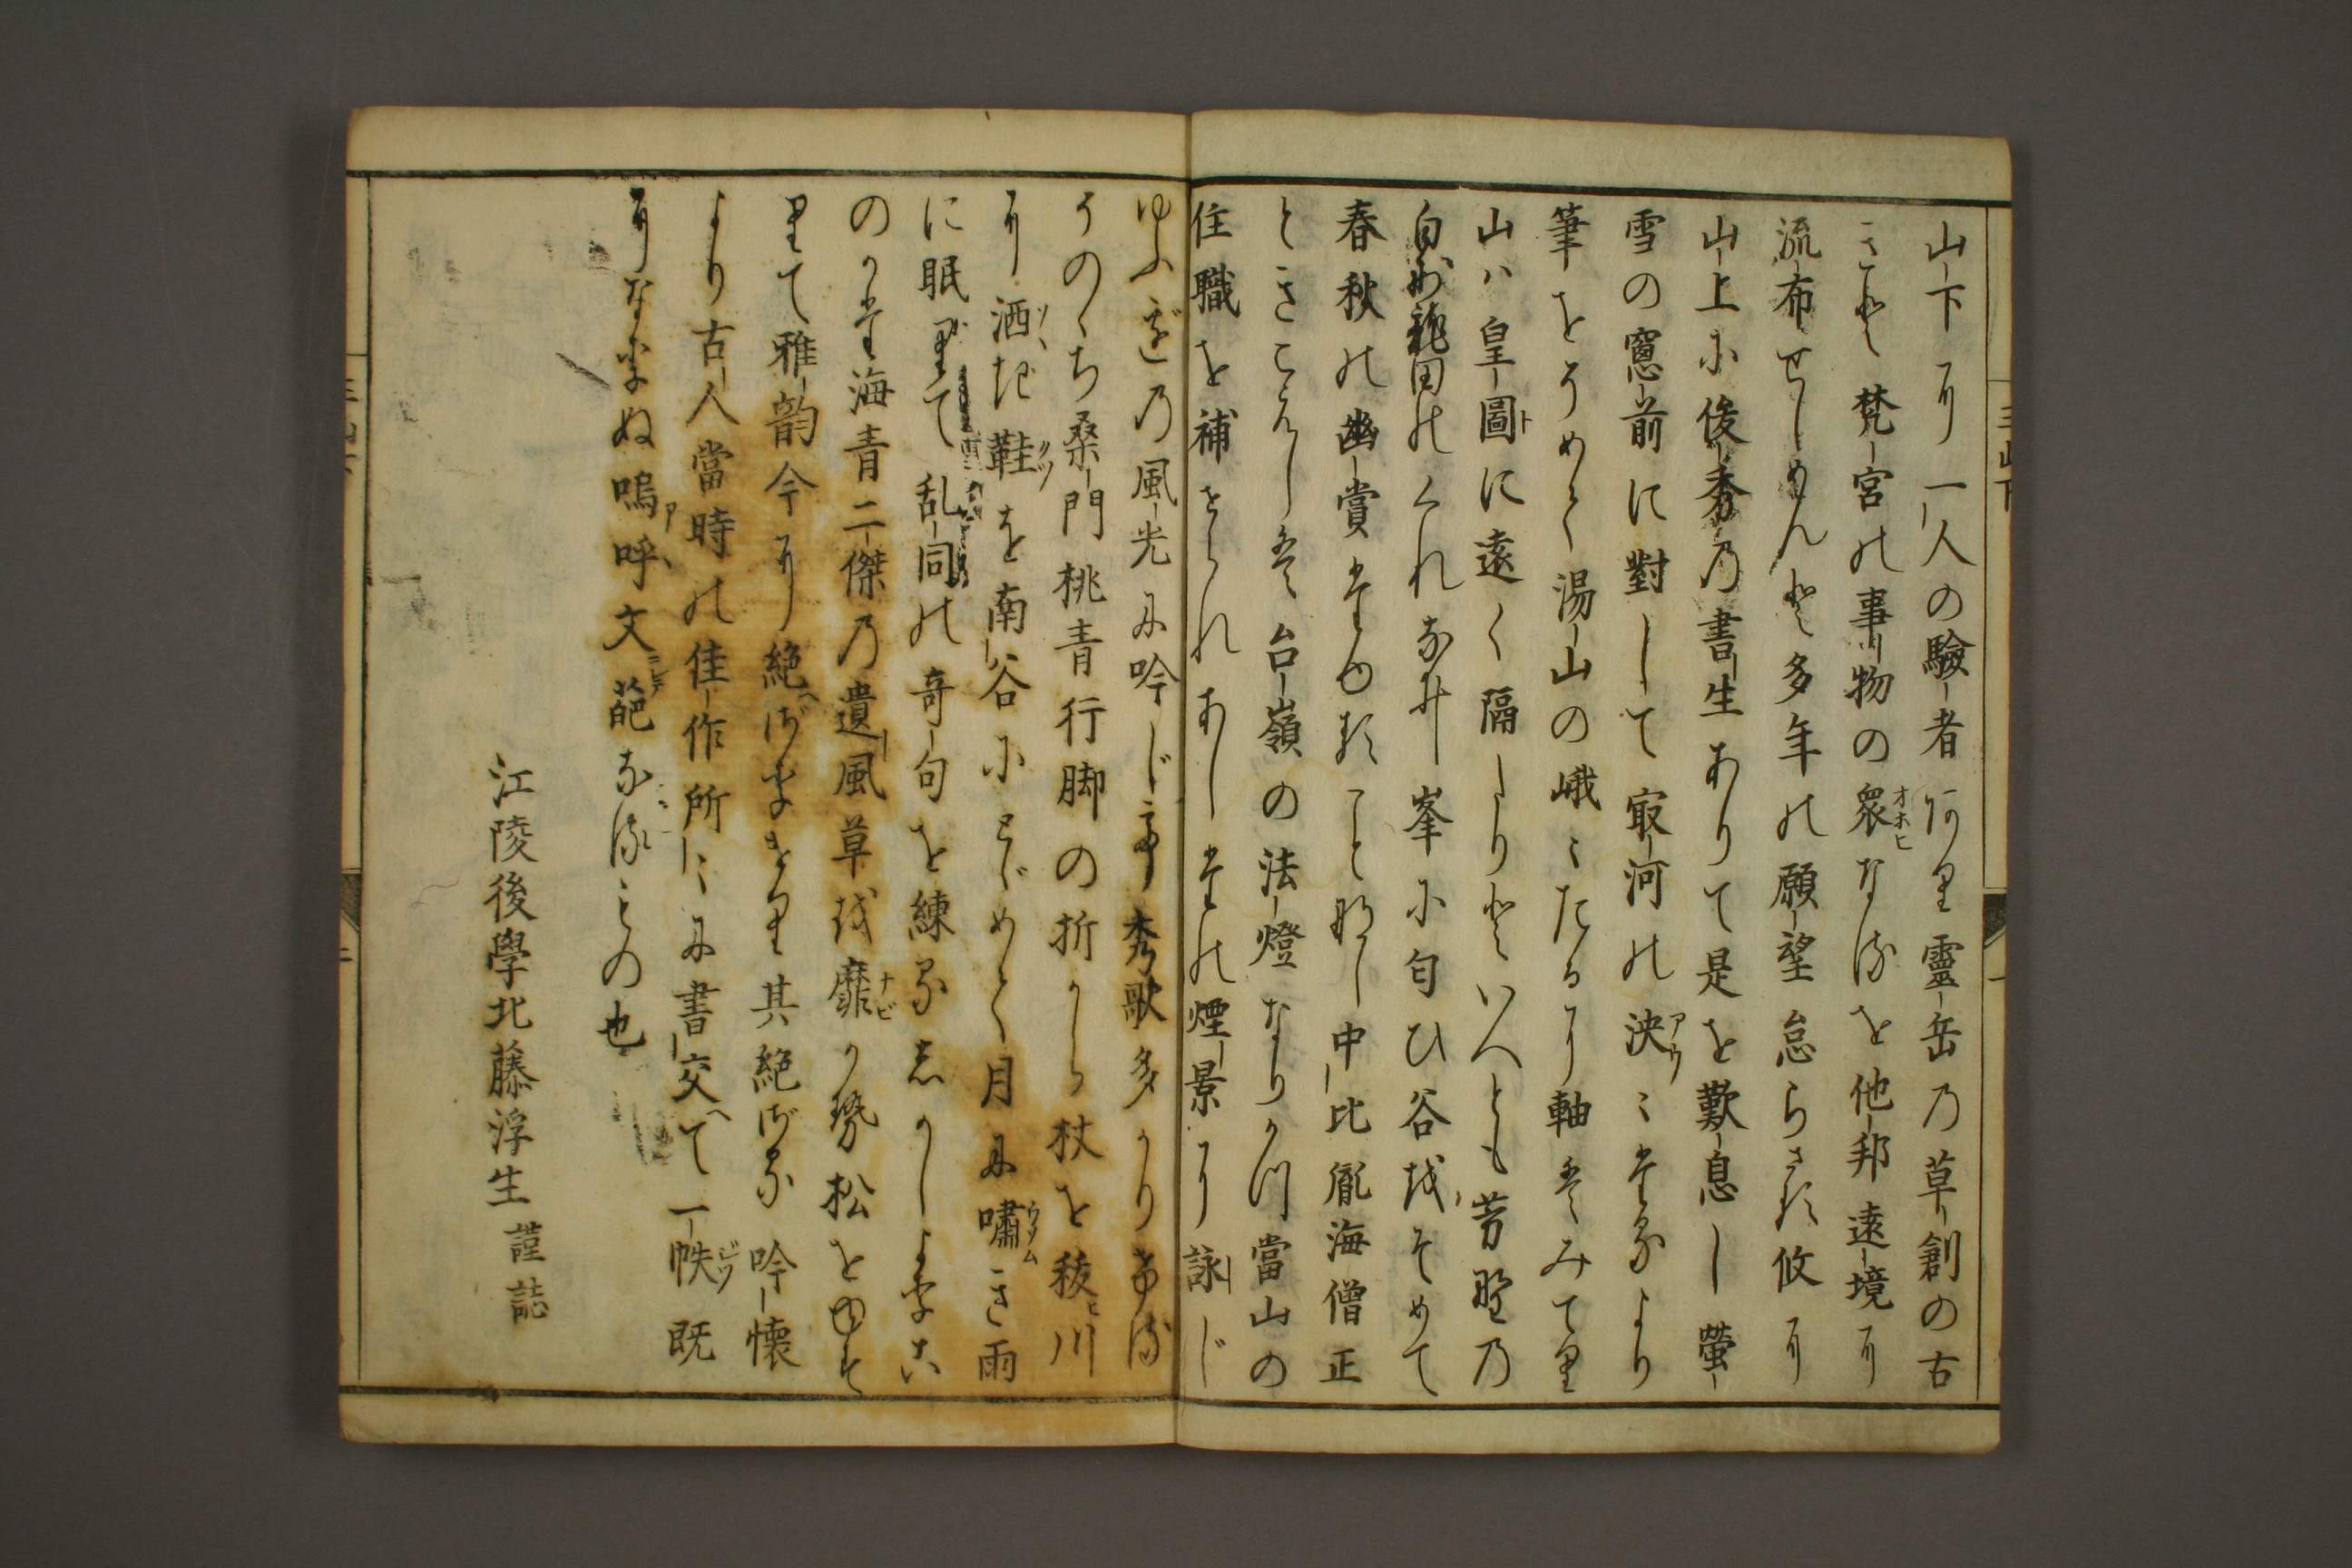 山下に一人の驗者有り靈岳乃草創の古
きと梵宮の事物の衆なるを他邦遠境に
流布せしめんと多年の願望怠らさる攸に
山上に俊秀乃書生ありて是を歎息し螢
雪の窓前に對して寂河の泱〻たるより
筆をうめて湯山の峨〻たるに軸をみてり
山ハ皇圖に遠く隔たりといへとも芳野乃
白雲龍田のくれなゐ峯に匂ひ谷越そめて
春秋の幽賞たゆることなし中比胤海僧正
ときこえしは台嶺の法燈なりかつ當山の
住職を補せられありしたの煙景に詠し
ゆふぎの風光に吟じ玉ふ秀歌多かりきける
そののち桑門桃青行脚の折から杖を稜川
に洒れ鞋を南谷にとゞめて月に嘯き雨
に眠りて乱同の奇句を練る志かしよりこ
のかた海青二傑乃遺風草越靡か勢松をゆす
りて雅韵今に絶ずなをり其絶ずる吟懐
より古人當時の佳作所〻に書交へて一帙既
になんぬ嗚呼文葩なるもの也
江陵後學北藤浮生謹誌